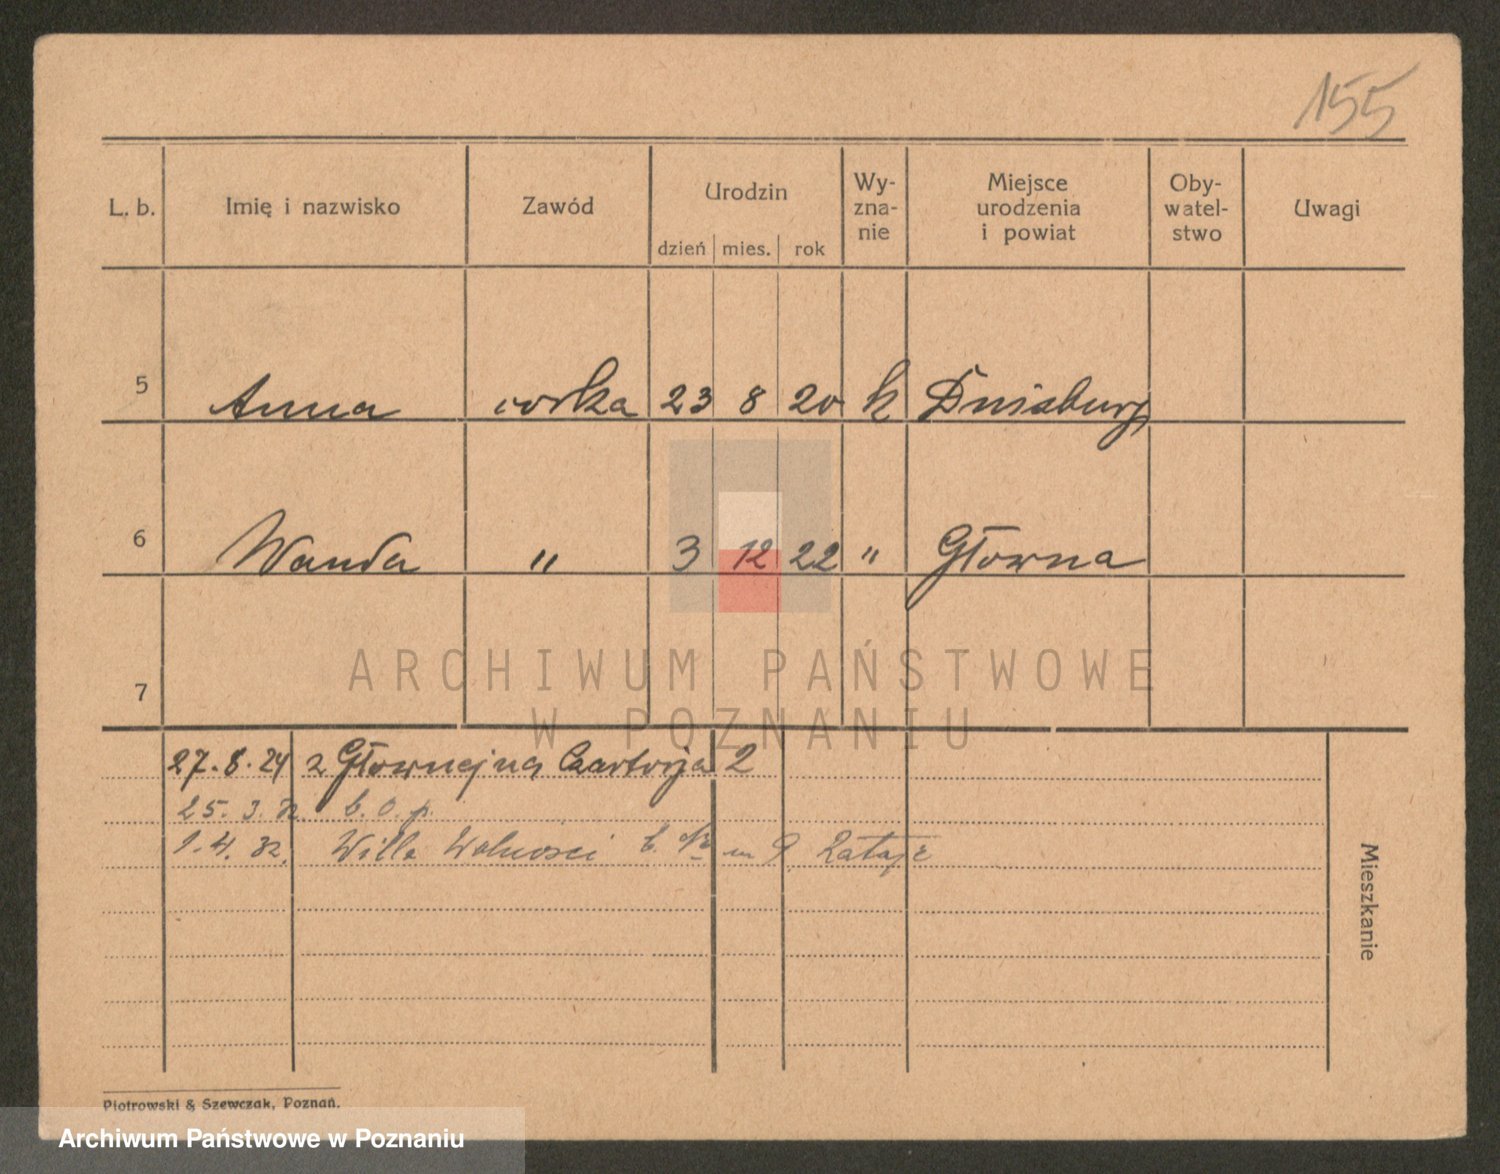 155
L. b. Imię i nazwisko Zawód Urodzin dzień mies. rok Wy- zna- nie Miejsce urodzenia i powiat Oby- watel- stwo Uwagi
5 Anna corka 23 8 20 k Duisburg
6 Wanda " 3 12 22 " Głowna
7
ARCHIWUM PAŃSTWOWE
W POZNANIU
27.8.24 z Głownej na Czartorja 2
25.3.32 b.O.p.
1.4.32. Willa Wolnosci b. m 9 Rataje
Mieszkanie
Piotrowski & Szewczak, Poznań.
Archiwum Państwowe w Poznaniu